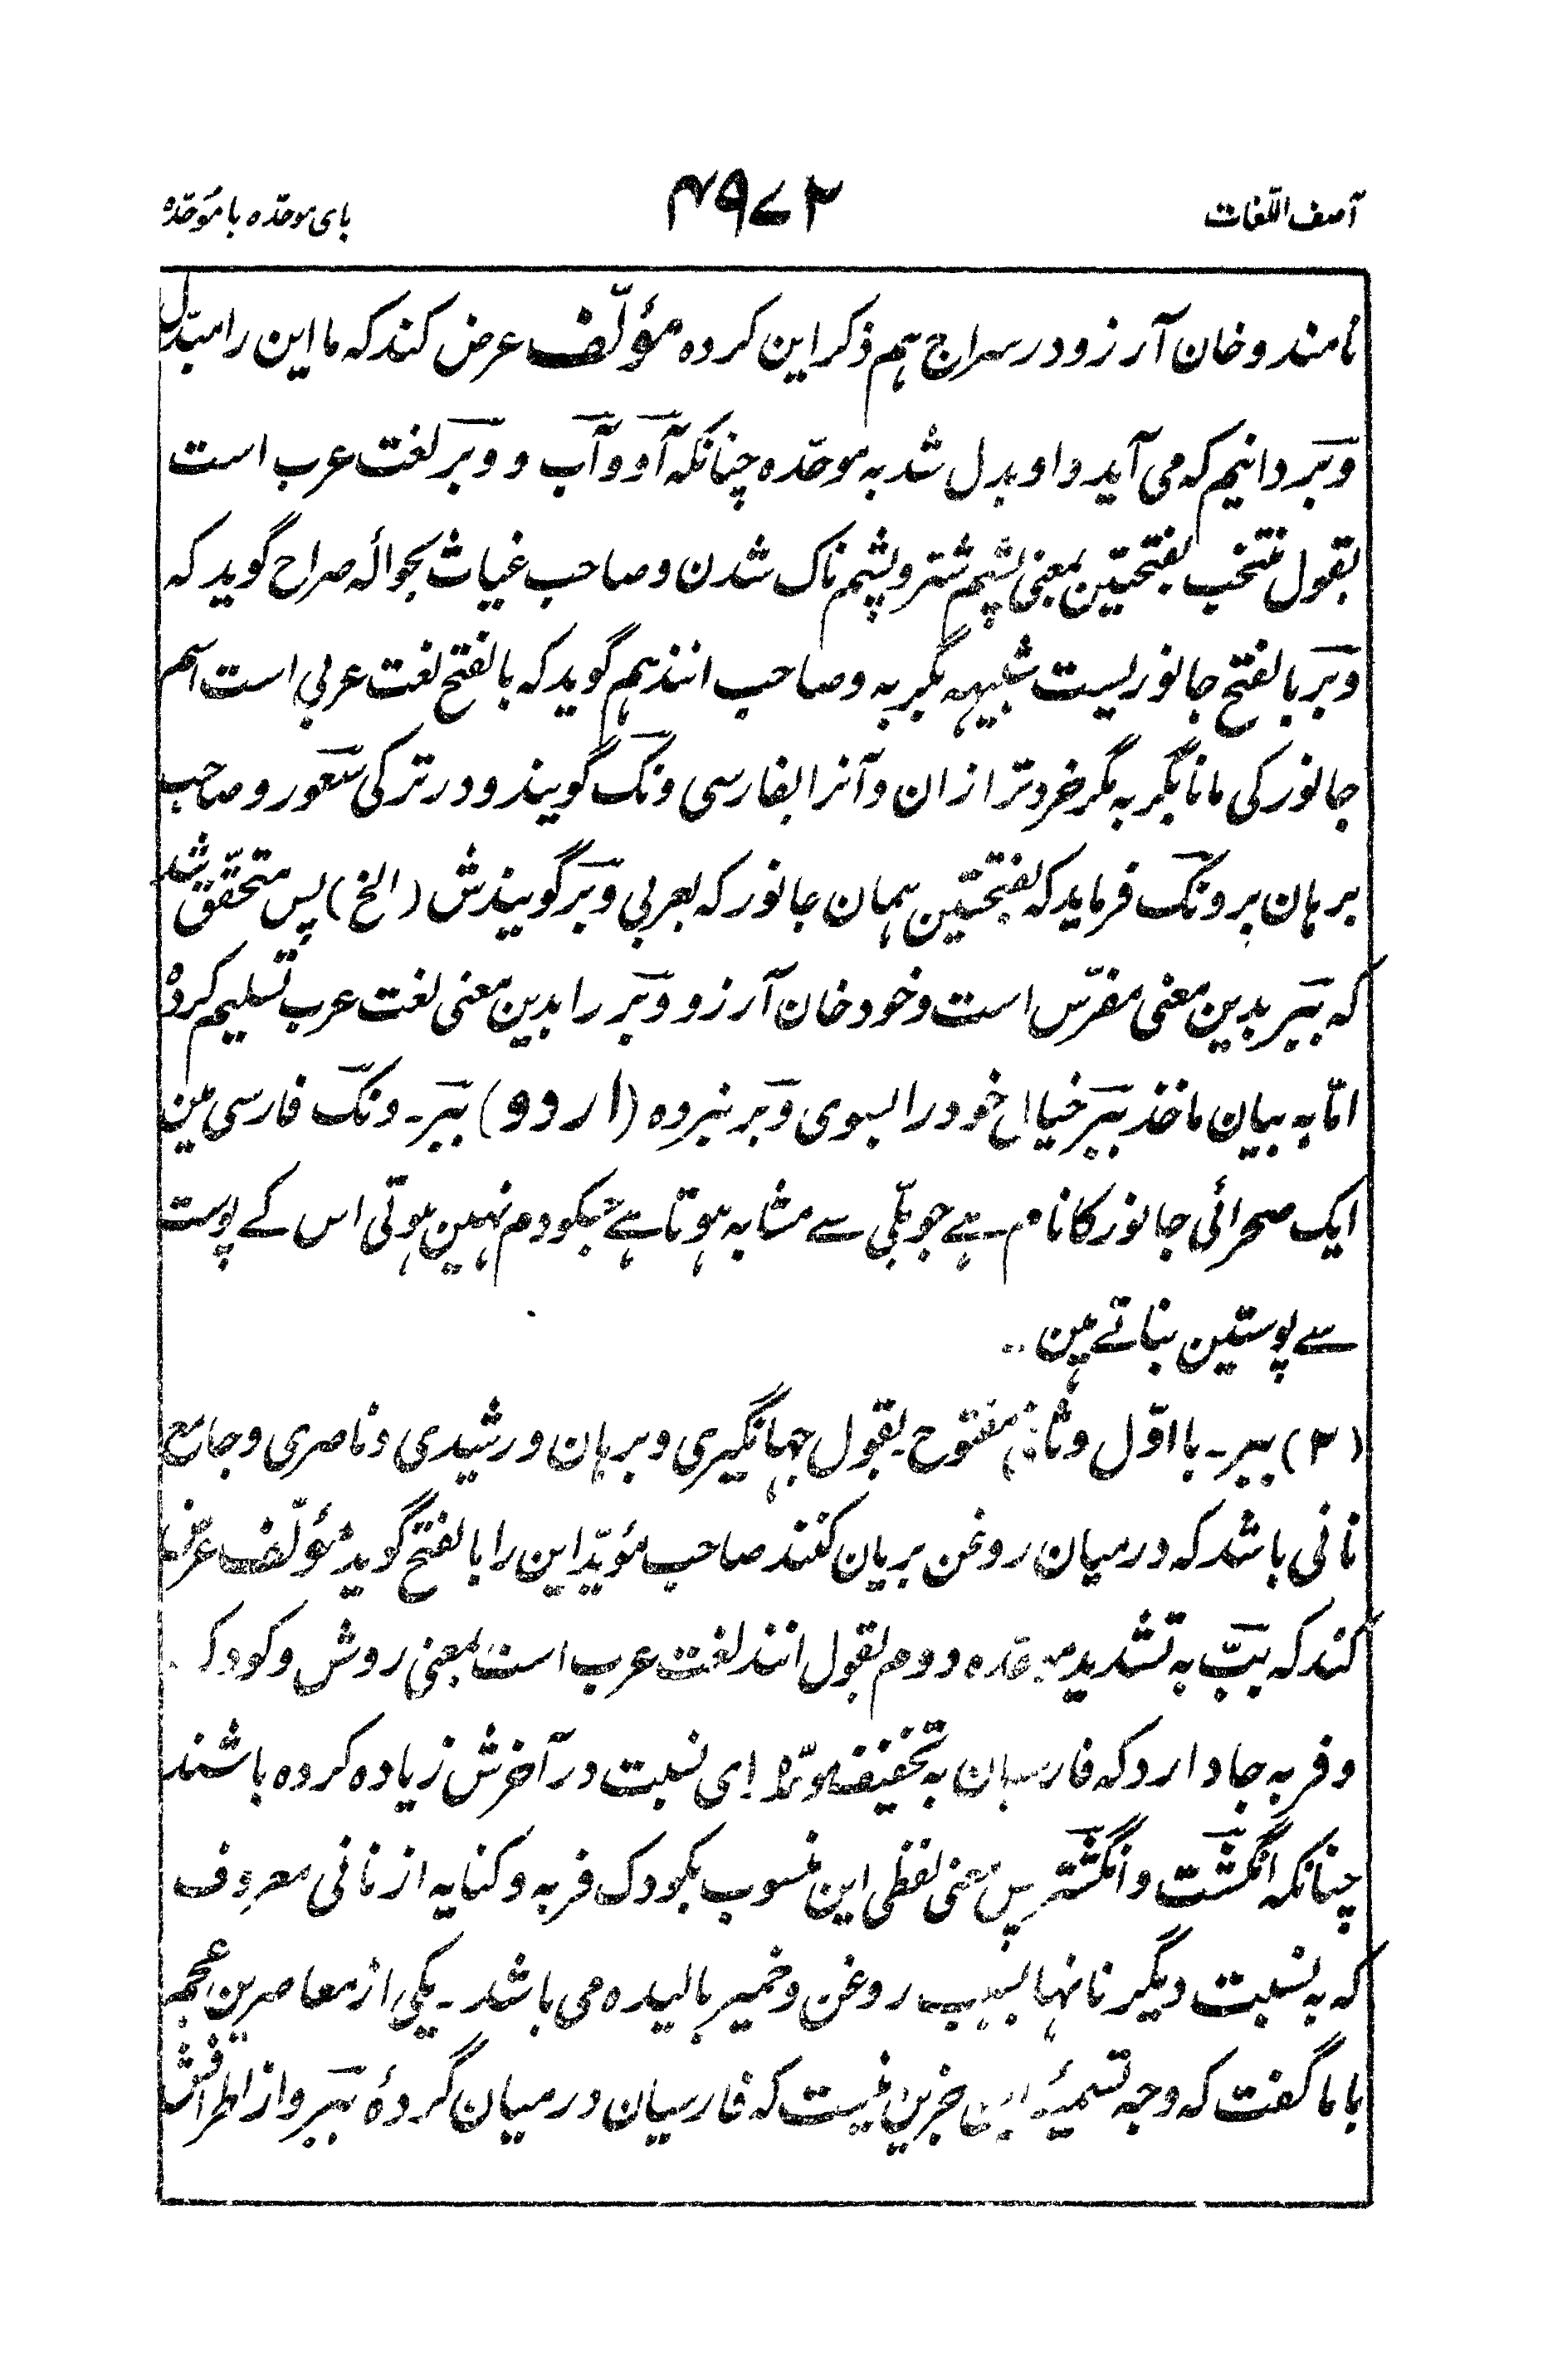 آصف اللّغات ۴۹۷۲ بای موحّده با موَحّده
نامند و خان آرزو در سراج ہم ذکر این کرده مؤلّف عرض کند که ما این را مبدّل
وَبَر دانیم که می آید واو بدل شد به موحّده چنانکه آو و آب و وَبَر لغت عرب است
بقول منتخب بفتحتین بمعنی پشم شتر و پشم ناک شدن و صاحب غیاث بحوالہ صراح گوید که
وَبَر بالفتح جانوریست شبیہه بگربه و صاحب انند ہم گوید که بالفتح لغت عربی است اسم
جانورکی مانا بگربه مگر خرد تر ازان و آنرا بفارسی ونک گویند و در ترکی سَعور و صاحب
برہان بر ونَک فرماید که بفتحتین ہمان جانور که بعربی وَبَر گویندش (الخ) پس متحقّق شد
که بَبَر بدین معنی مفرّس است و خود خان آرزو وَبَر را بدین معنی لغت عرب تسلیم کرده
امّا به بیان ماخذ بَبَر خیال خود را بسوی وَبَر نبرده (اردو) بَبَر۔ ونَک فارسی مین
ایک صحرائی جانور کا نام ہے جو بلّی سے مشابہ ہوتا ہے جسکو دم نہین ہوتی اس کے پوست
سے پوستین بناتے ہین ..
(۳) ببر۔ با اوّل و ثانی مفتوح بقول جہانگیری و برہان و رشیدی و ناصری و جامع
نانی باشد که در میان روغن بریان کنند صاحب مؤیّد این را بالفتح گوید مؤلّف عرض
کند که بَبّ به تشدید موحّده دوم بقول انند لغت عرب است بمعنی روش و کودک
و فربه جا دارد که فارسیان به تخفیف رای نسبت در آخرش زیاده کرده باشند
چنانکه انگشت و انگشتر پس معنی لفظی این منسوب بکودک فربه و کنایه از نانی معروف
که به نسبت دیگر نانہا بسبب روغن و خمیر بالیده می باشد۔ یکی از معاصرین عجم
با ما گفت که وجه تسمیۂ این جزین نیست که فارسیان در میان گردۂ ببَر و از اطرافش